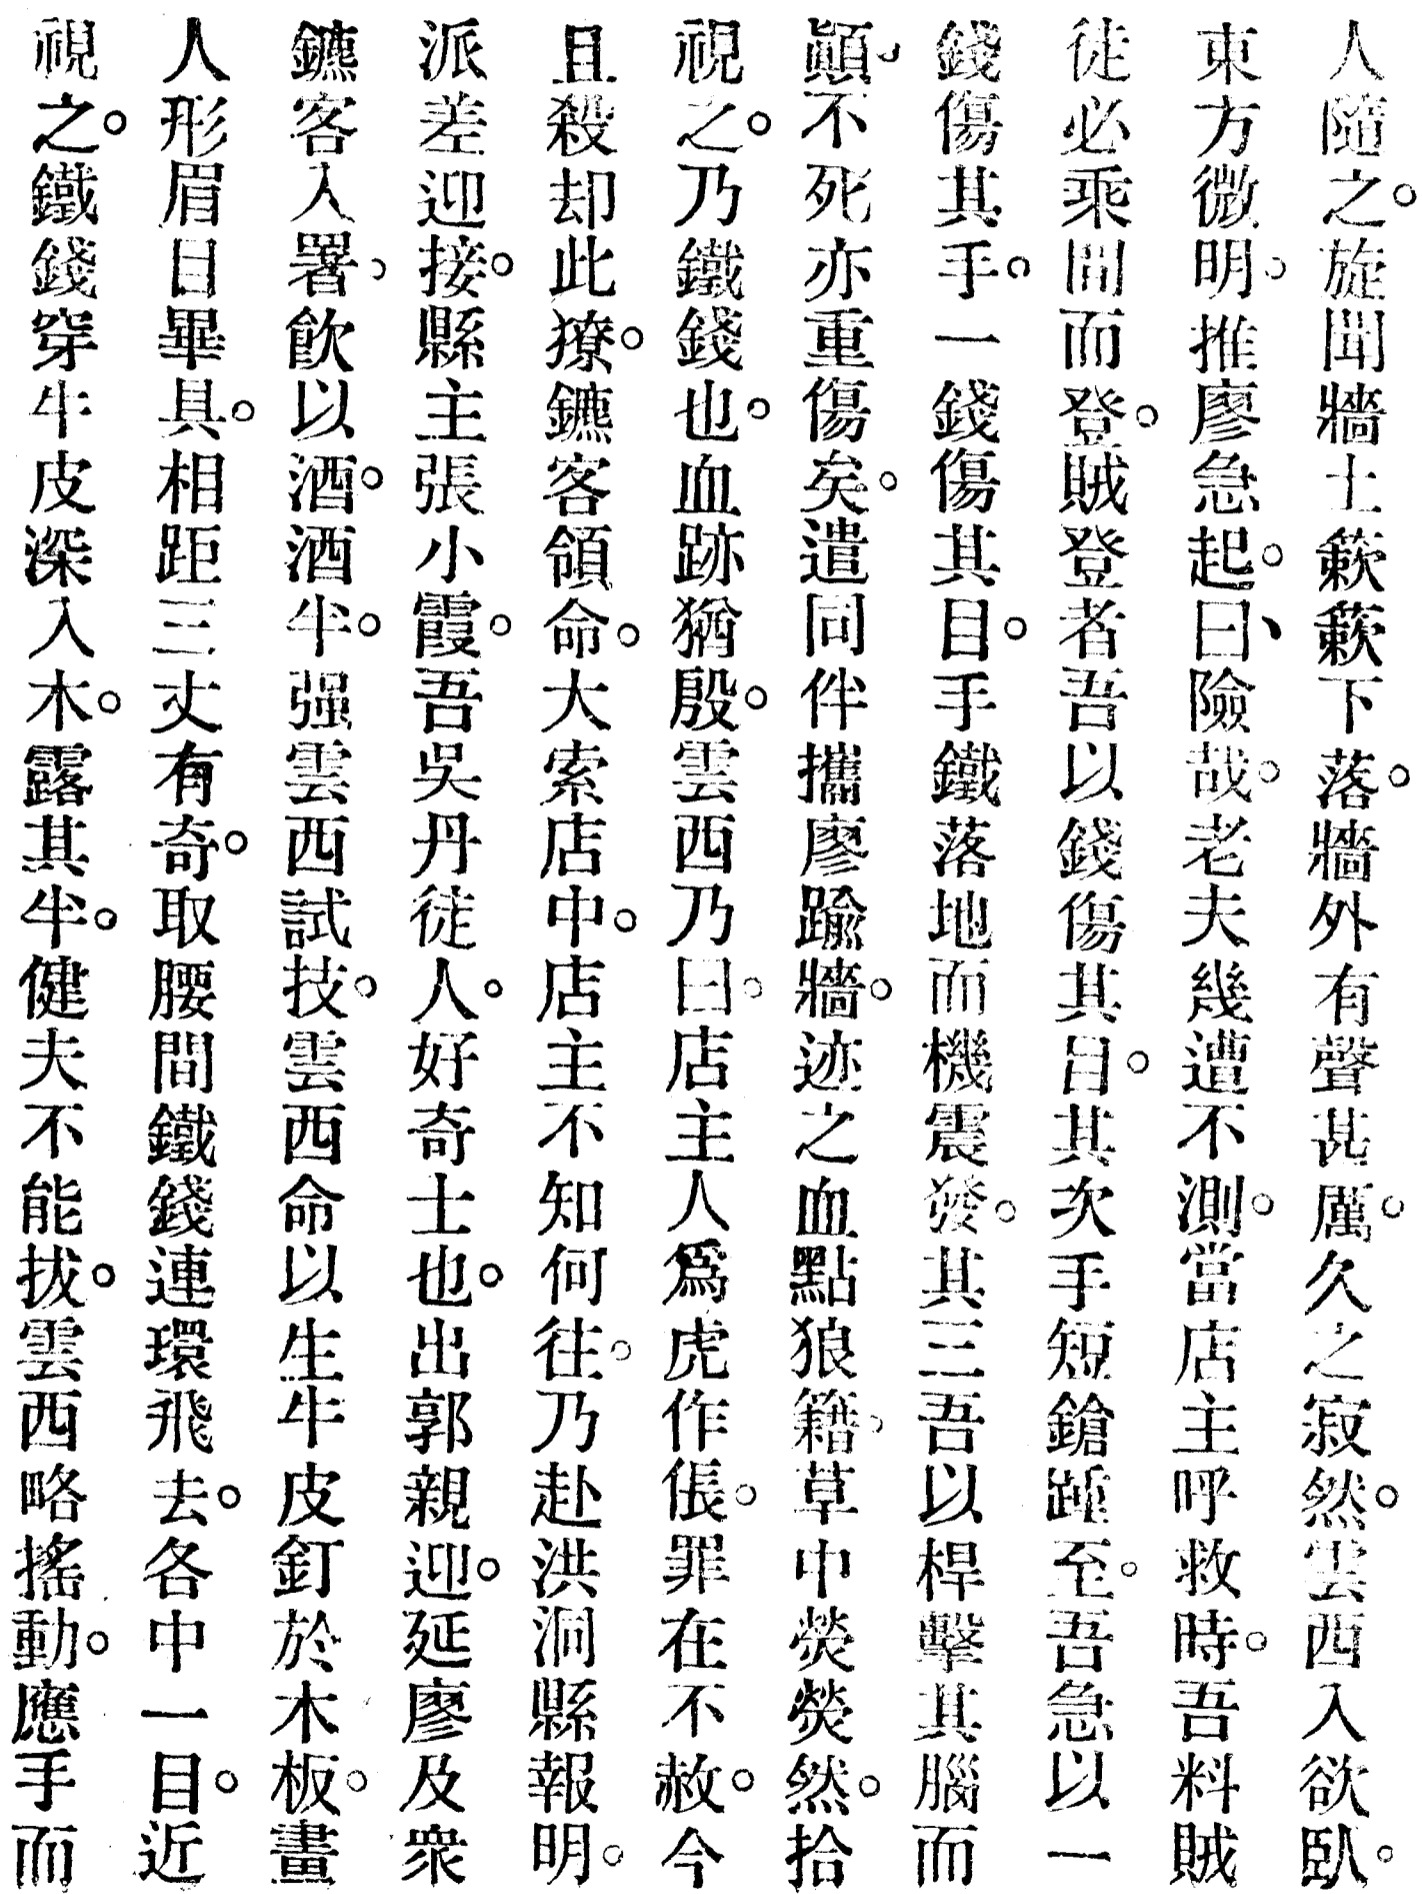 人隨之。旋聞牆土簌簌下落。牆外有聲甚厲。久之寂然。雲西入欲臥。
東方微明。推廖急起。曰、險哉。老夫幾遭不測。當店主呼救時。吾料賊
徒必乘間而登。賊登者吾以錢傷其目。其次手短鎗踵至。吾急以一
錢傷其手。一錢傷其目。手鐵落地而機震發。其三吾以桿擊其腦而
顚。不死亦重傷矣。遣同伴攜廖踰牆。迹之血點狼籍。草中熒熒然。拾
視之。乃鐵錢也。血跡猶殷。雲西乃曰。店主人爲虎作倀。罪在不赦。今
且殺却此獠。鑣客領命。大索店中。店主不知何往。乃赴洪洞縣報明。
派差迎接。縣主張小霞。吾吳丹徒人。好奇士也。出郭親迎。延廖及衆
鑣客入署。飲以酒。酒半。强雲西試技。雲西命以生牛皮釘於木板。畫
人形眉目畢具。相距三丈有奇。取腰間鐵錢連環飛去。各中一目。近
視之。鐵錢穿牛皮深入木。露其半。健夫不能拔。雲西略搖動。應手而